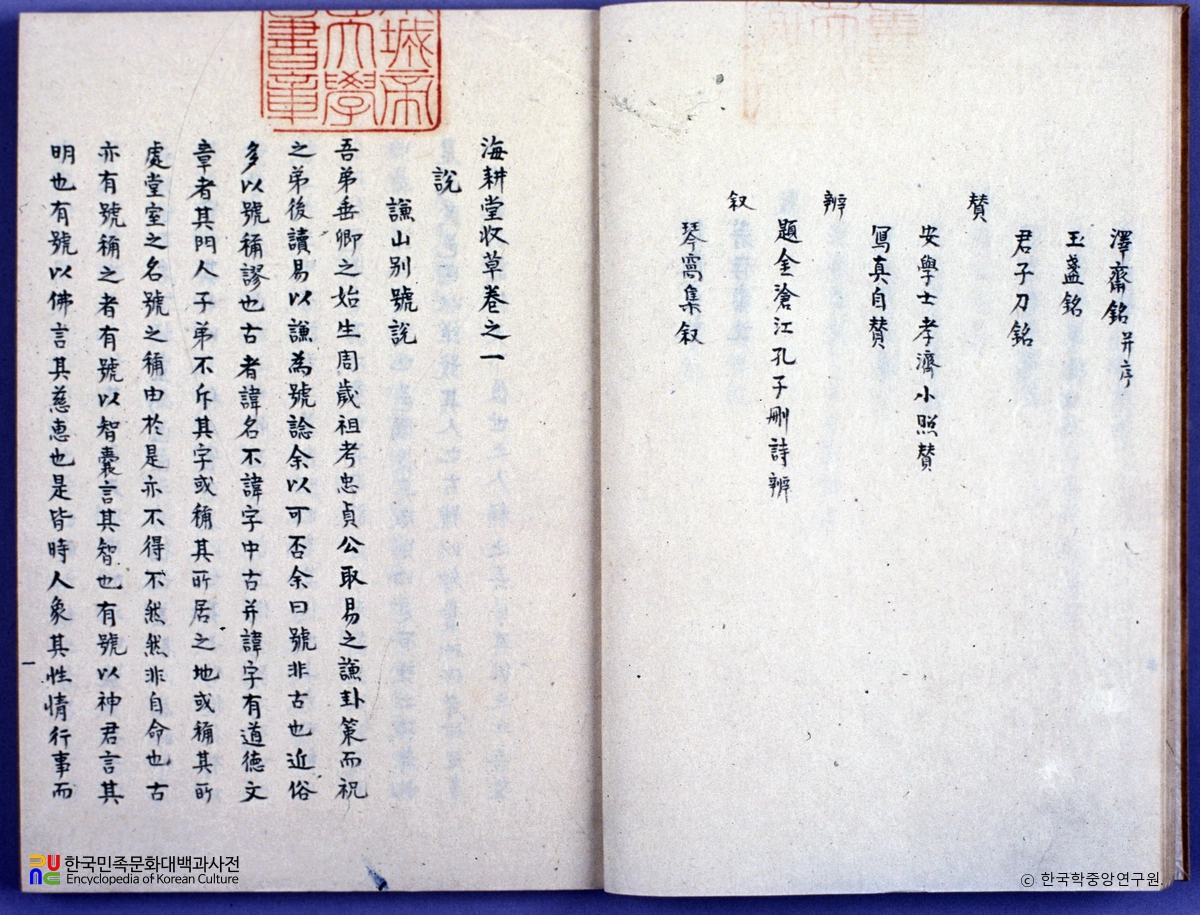 澤齋銘并序
玉盞銘
君子刀銘
贊
安學士孝濟小照贊
寫真自贊
辨
題金滄江孔子刪詩辨
叙
琴窩集叙
海耕堂收草卷之一
說
謙山別號說
吾弟垂卿之始生周歲祖考忠貞公取易之謙卦策而祝
之弟後讀易以謙為號諗余以可否余曰號非古也近俗
多以號稱謬也古者諱名不諱字中古并諱字有道德文
章者其門人子弟不斥其字或稱其所居之地或稱其所
處堂室之名號之稱由於是亦不得不然然非自命也古
亦有號稱之者有號以智囊言其智也有號以神君言其
明也有號以佛言其慈惠也是皆時人象其性情行事而
一
城帝
大學
書章
한국민족문화대백과사전
Encyclopedia of Korean Culture
© 한국학중앙연구원